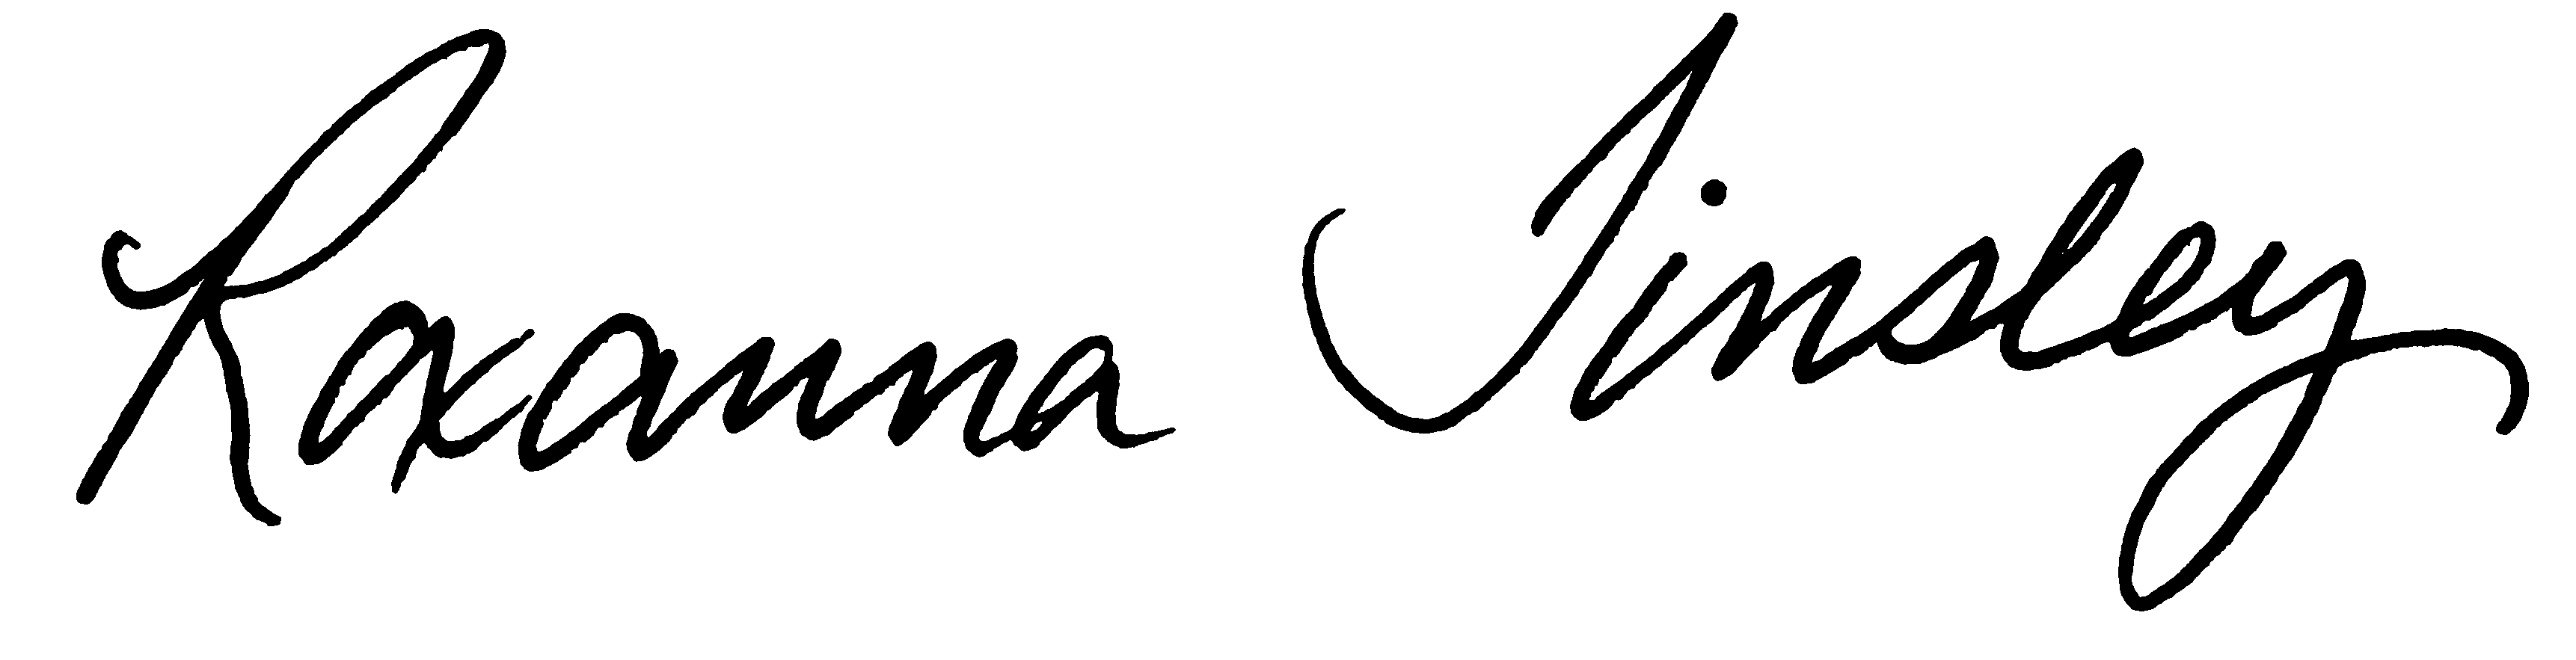 Roxanna Tinsley